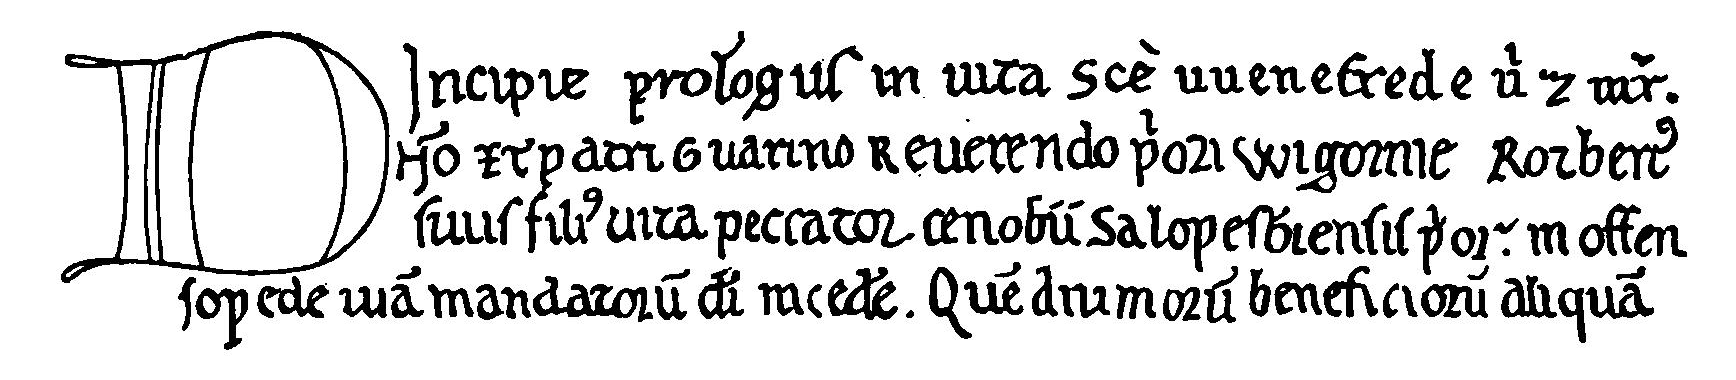 Incipit prologus in uita sc̄e uuenefrede ū ⁊ mr̄.
DHō ⁊ patri Guarino Reuerendo p'ori Wigornie Rotbertꝰ
suus filiꝰ uita peccator cenobii Salopesbiensis p'or. in offen
so pede uiā mandatorū dī incedē. Quē diuinorū beneficiorū aliquā